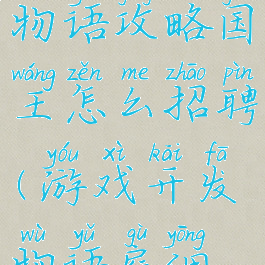 物语攻略国
wáng zěn me zhāo pìn
王怎么招聘
yóu xì kāi fā
（游戏开发
wù yǔ gù yōng
物语雇佣